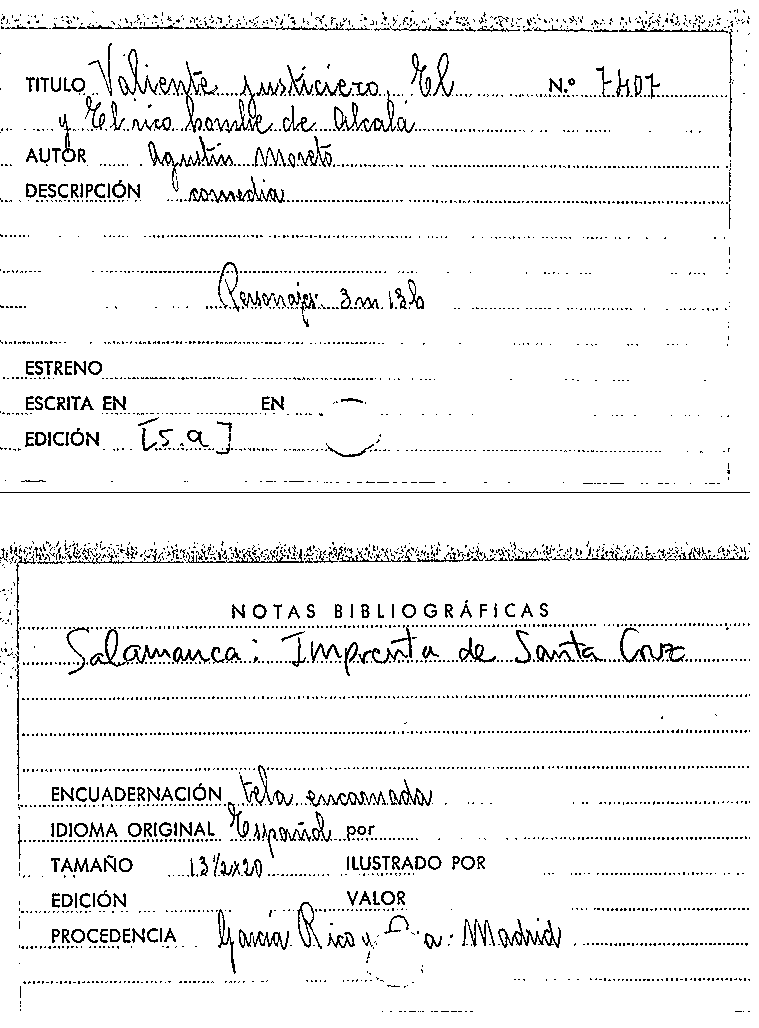 TITULO Valiente justiciero, El N.º 7407
y El rico hombre de Alcalá
AUTOR Agustín Moreto
DESCRIPCIÓN comedia
Personajes: 3m 13h
ESTRENO
ESCRITA EN EN
EDICIÓN [s.a]
NOTAS BIBLIOGRÁFICAS
Salamanca: Imprenta de Santa Cruz
ENCUADERNACIÓN tela encarnada
IDIOMA ORIGINAL Español por
TAMAÑO 13½x20 ILUSTRADO POR
EDICIÓN VALOR
PROCEDENCIA García Rico y a. Madrid